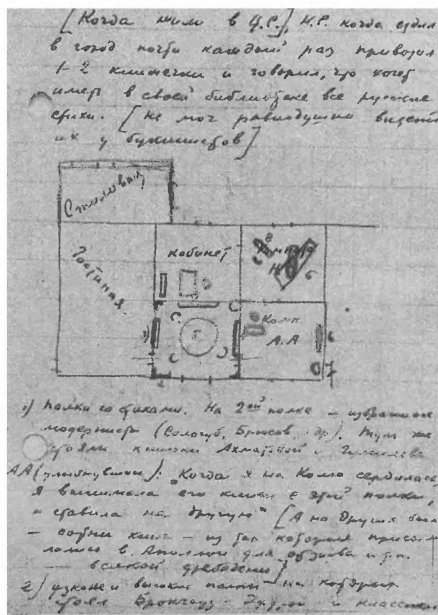 [Когда жили в Ц.С.], Н.С. когда ездил
в город почти каждый раз привозил
1-2 книжечки и говорил, что хочет
иметь в своей библиотеке все русские
стихи. [Не мог равнодушно видеть
их у букинистов]
Столовая
Гостиная
кабинет
Комн.
А.А
1) Полки со стихами. На 2ой полке – избранные
модернисты (Сологуб, Брюсов и др). Тут же
стояли книжки Ахматовой и Гумилева
АА (улыбнувшись): "Когда я на Колю сердилась,
я вынимала его книги с этой полки,
и ставила на другую" [А на других были
– сотни книг – из тех которые присы-
лались в Аполлон для отзыва и т.п.
– всякой дребедени]
2) узкие и высокие полки – на которых
стоял Брокгауз-Эфрон и классики